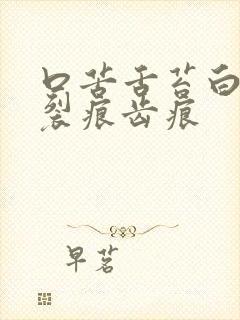 口苦舌苔白
裂痕齿痕
早茗